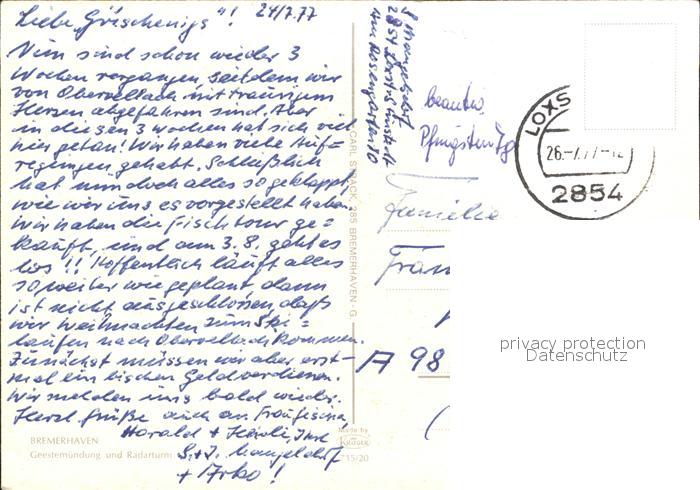 Liebe „Görschenigs"! 24/7.77
Nun sind schon wieder 3
Wochen vergangen, seitdem wir
von Obervellach mit traurigem
Herzen abgefahren sind. Aber
in diesen 3 Wochen hat sich viel
hier getan! Wir haben viele Auf=
regungen gehabt. Schließlich
hat nun doch alles so geklappt,
wie wir uns es vorgestellt haben.
Wir haben die Fischtour ge=
kauft, und am 3.8. geht es
los!! Hoffentlich läuft alles
so weiter wie geplant, dann
ist nicht ausgeschlossen, daß
wir Weihnachten zum Ski=
laufen nach Obervellach kommen.
Zunächst müssen wir aber erst-
mal ein bischen Geld verdienen.
Wir melden uns bald wieder.
Herzl. Grüße auch an
Harald +
+ Arko!
BREMERHAVEN
Geestemündung und Radarturm
CARL STRACK, 285 BREMERHAVEN - G.
Made by
KRÜGER
715/20
S. Mangelsdorf
2854
Am Rosengarten 10
beantw.
Pfingsten
Familie
Fran
A 98
LOXS
26.-7.77-12
2854
privacy protection
Datenschutz